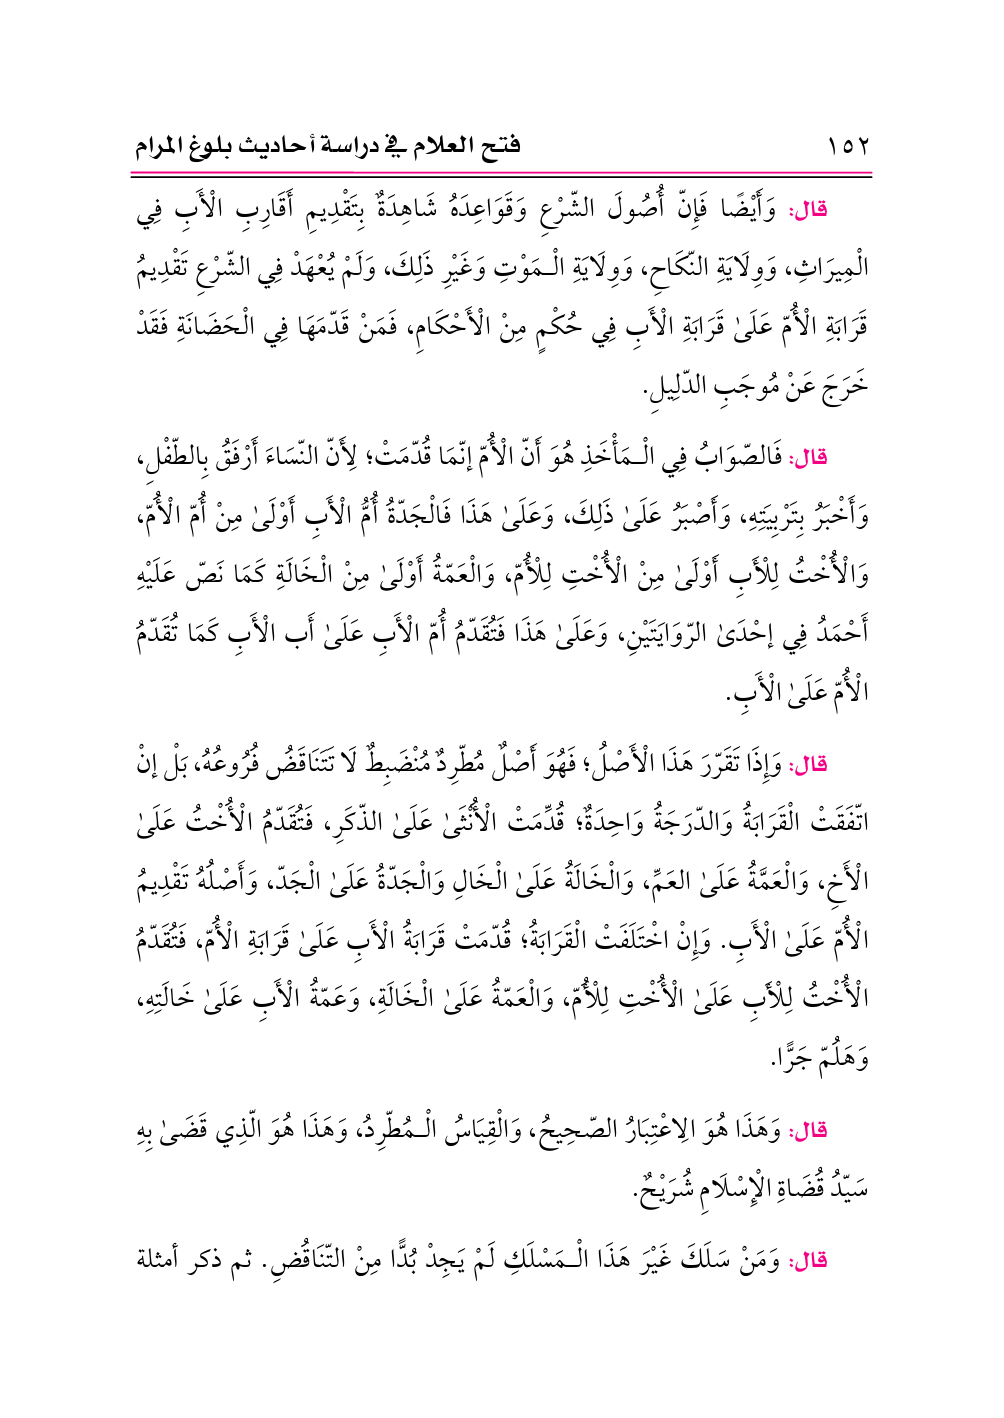 ١٥٢ فتح العلام في دراسة أحاديث بلوغ المرام
قال: وَأَيْضًا فَإِنّ أُصُولَ الشّرْعِ وَقَوَاعِدَهُ شَاهِدَةٌ بِتَقْدِيمِ أَقَارِبِ الْأَبِ فِي
الْمِيرَاثِ، وَوِلَايَةِ النّكَاحِ، وَوِلَايَةِ الْـمَوْتِ وَغَيْرِ ذَلِكَ، وَلَمْ يُعْهَدْ فِي الشّرْعِ تَقْدِيمُ
قَرَابَةِ الْأُمّ عَلَىٰ قَرَابَةِ الْأَبِ فِي حُكْمٍ مِنْ الْأَحْكَامِ، فَمَنْ قَدّمَهَا فِي الْحَضَانَةِ فَقَدْ
خَرَجَ عَنْ مُوجَبِ الدّلِيلِ.
قال: فَالصّوَابُ فِي الْـمَأْخَذِ هُوَ أَنّ الْأُمّ إنّمَا قُدّمَتْ؛ لِأَنّ النّسَاءَ أَرْفَقُ بِالطّفْلِ،
وَأَخْبَرُ بِتَرْبِيَتِهِ، وَأَصْبَرُ عَلَىٰ ذَلِكَ، وَعَلَىٰ هَذَا فَالْجَدّةُ أُمُّ الْأَبِ أَوْلَىٰ مِنْ أُمّ الْأُمّ،
وَالْأُخْتُ لِلْأَبِ أَوْلَىٰ مِنْ الْأُخْتِ لِلْأُمّ، وَالْعَمّةُ أَوْلَىٰ مِنْ الْخَالَةِ كَمَا نَصّ عَلَيْهِ
أَحْمَدُ فِي إحْدَىٰ الرّوَايَتَيْنِ، وَعَلَىٰ هَذَا فَتُقَدّمُ أُمّ الْأَبِ عَلَىٰ أَب الْأَبِ كَمَا تُقَدّمُ
الْأُمّ عَلَىٰ الْأَبِ.
قال: وَإِذَا تَقَرّرَ هَذَا الْأَصْلُ؛ فَهُوَ أَصْلٌ مُطّرِدٌ مُنْضَبِطٌ لَا تَتَنَاقَضُ فُرُوعُهُ، بَلْ إنْ
اتّفَقَتْ الْقَرَابَةُ وَالدّرَجَةُ وَاحِدَةٌ؛ قُدِّمَتْ الْأُنْثَىٰ عَلَىٰ الذّكَرِ، فَتُقَدّمُ الْأُخْتُ عَلَىٰ
الْأَخِ، وَالْعَمَّةُ عَلَىٰ العَمِّ، وَالْخَالَةُ عَلَىٰ الْخَالِ وَالْجَدّةُ عَلَىٰ الْجَدّ، وَأَصْلُهُ تَقْدِيمُ
الْأُمّ عَلَىٰ الْأَبِ. وَإِنْ اخْتَلَفَتْ الْقَرَابَةُ؛ قُدّمَتْ قَرَابَةُ الْأَبِ عَلَىٰ قَرَابَةِ الْأُمّ، فَتُقَدّمُ
الْأُخْتُ لِلْأَبِ عَلَىٰ الْأُخْتِ لِلْأُمّ، وَالْعَمّةُ عَلَىٰ الْخَالَةِ، وَعَمّةُ الْأَبِ عَلَىٰ خَالَتِهِ،
وَهَلُمّ جَرًّا.
قال: وَهَذَا هُوَ الِاعْتِبَارُ الصّحِيحُ، وَالْقِيَاسُ الْـمُطّرِدُ، وَهَذَا هُوَ الّذِي قَضَىٰ بِهِ
سَيّدُ قُضَاةِ الْإِسْلَامِ شُرَيْحٌ.
قال: وَمَنْ سَلَكَ غَيْرَ هَذَا الْـمَسْلَكِ لَمْ يَجِدْ بُدًّا مِنْ التّنَاقُضِ. ثم ذكر أمثلة